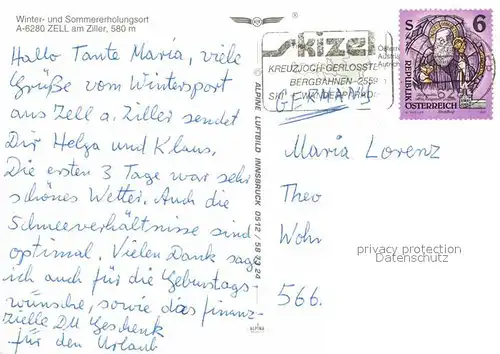 Winter- und Sommererholungsort
A-6280 ZELL am Ziller, 580 m
Hallo Tante Maria, viele
Grüße vom Wintersport
aus Zell a. Ziller sendet
Dir Helga und Klaus.
Die ersten 3 Tage war sehr
schönes Wetter. Auch die
Schneeverhältnisse sind
optimal. Vielen Dank sage
ich auch für die Geburtstags-
wünsche, sowie das finanz-
zielle DM Geschenk
für den Urlaub
ALPINE LUFTBILD INNSBRUCK 0512 / 58 73 24
ALPINA
skizel
KREUZJOCH-GERLOSSTE
BERGBAHNEN 2559
GERMANY
S 6
REPUBLIK
ÖSTERREICH
Maria Lorenz
Theo
Wohn
privacy protection
Datenschutz
566.